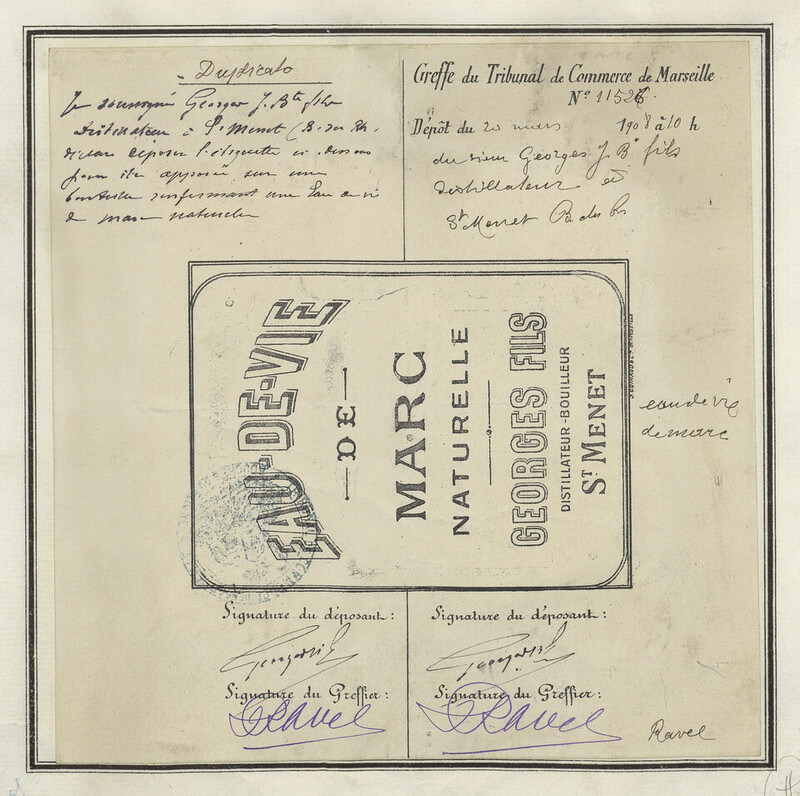 Duplicata
Je soussigné Georges J. Bte fils
distillateur à St Menet (B. du Rh.
déclare déposer l'étiquette ci dessous
pour être apposée sur une
bouteille renfermant une Eau de vie
de marc naturelle
Greffe du Tribunal de Commerce de Marseille
N° 11526.
Dépôt du 20 mars 1908 à 10 h
du sieur Georges J. Bte fils
distillateur
St Menet B. du Rh
EAU-DE-VIE
DE
MARC
NATURELLE
GEORGES FILS
DISTILLATEUR-BOUILLEUR
ST MENET
eau de vie
de marc
Signature du déposant:
Signature du déposant:
Georges
Georges
Signature du Greffier:
Signature du Greffier:
Ravel
Ravel
Ravel